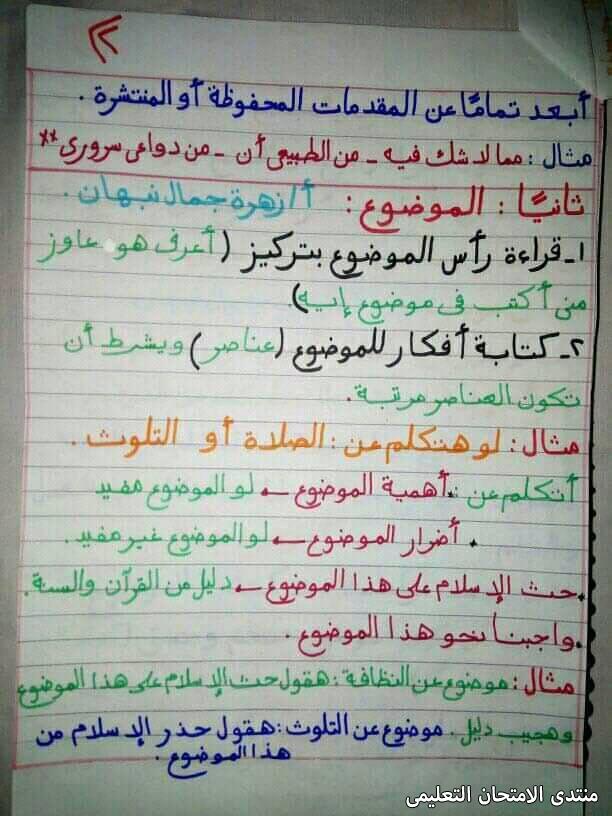 ٢
أبعد تمامًا عن المقدمات المحفوظة أو المنتشرة .
مثال : مما لا شك فيه - من الطبيعى أن - من دواعى سرورى **
ثانيًا : الموضوع : أ/ زهرة جمال نبهان .
١- قراءة رأس الموضوع بتركيز ( أعرف هو عاوز
منى أكتب فى موضوع إيه )
٢- كتابة أفكار للموضوع ( عناصر ) ويشرط أن
تكون العناصر مرتبة .
مثال : لو هنتكلم عن : الصلاة أو التلوث .
أتكلم عن : أهمية الموضوع ← لو الموضوع مفيد
. أضرار الموضوع ← لو الموضوع غير مفيد .
. حث الإسلام على هذا الموضوع ← دليل من القرآن والسنة .
. واجبنا نحو هذا الموضوع .
مثال : موضوع عن النظافة : هقول حث الإسلام على هذا الموضوع
وهجيب دليل . موضوع عن التلوث : هقول حذر الإسلام من
هذا الموضوع .
منتدى الامتحان التعليمى